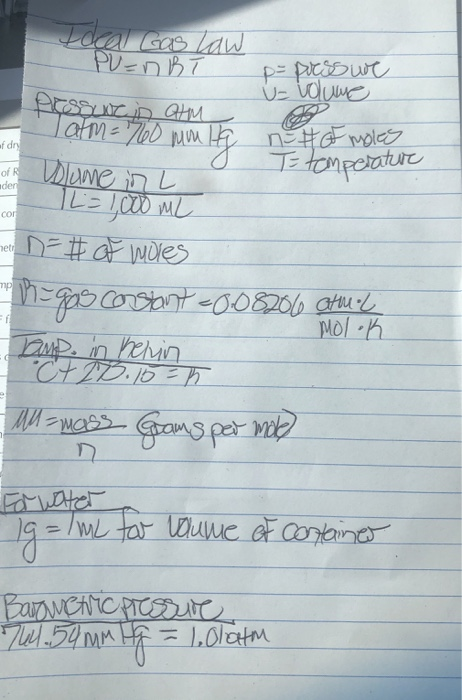 Ideal Gas Law
PV=nRT
P= pressure
V= Volume
n= # of moles
T= temperature
Pressure in atm
1 atm = 760 mm Hg
Volume in L
1L = 1,000 mL
n= # of moles
R= gas constant = 0.08206 atm·L
mol·K
Temp. in Kelvin
°C + 273.15 = K
MM = mass (grams per mole)
n
For water
1g = 1mL for volume of container
Barometric pressure
= 1.01 atm
of dry
of R
den
cor
metr
mp